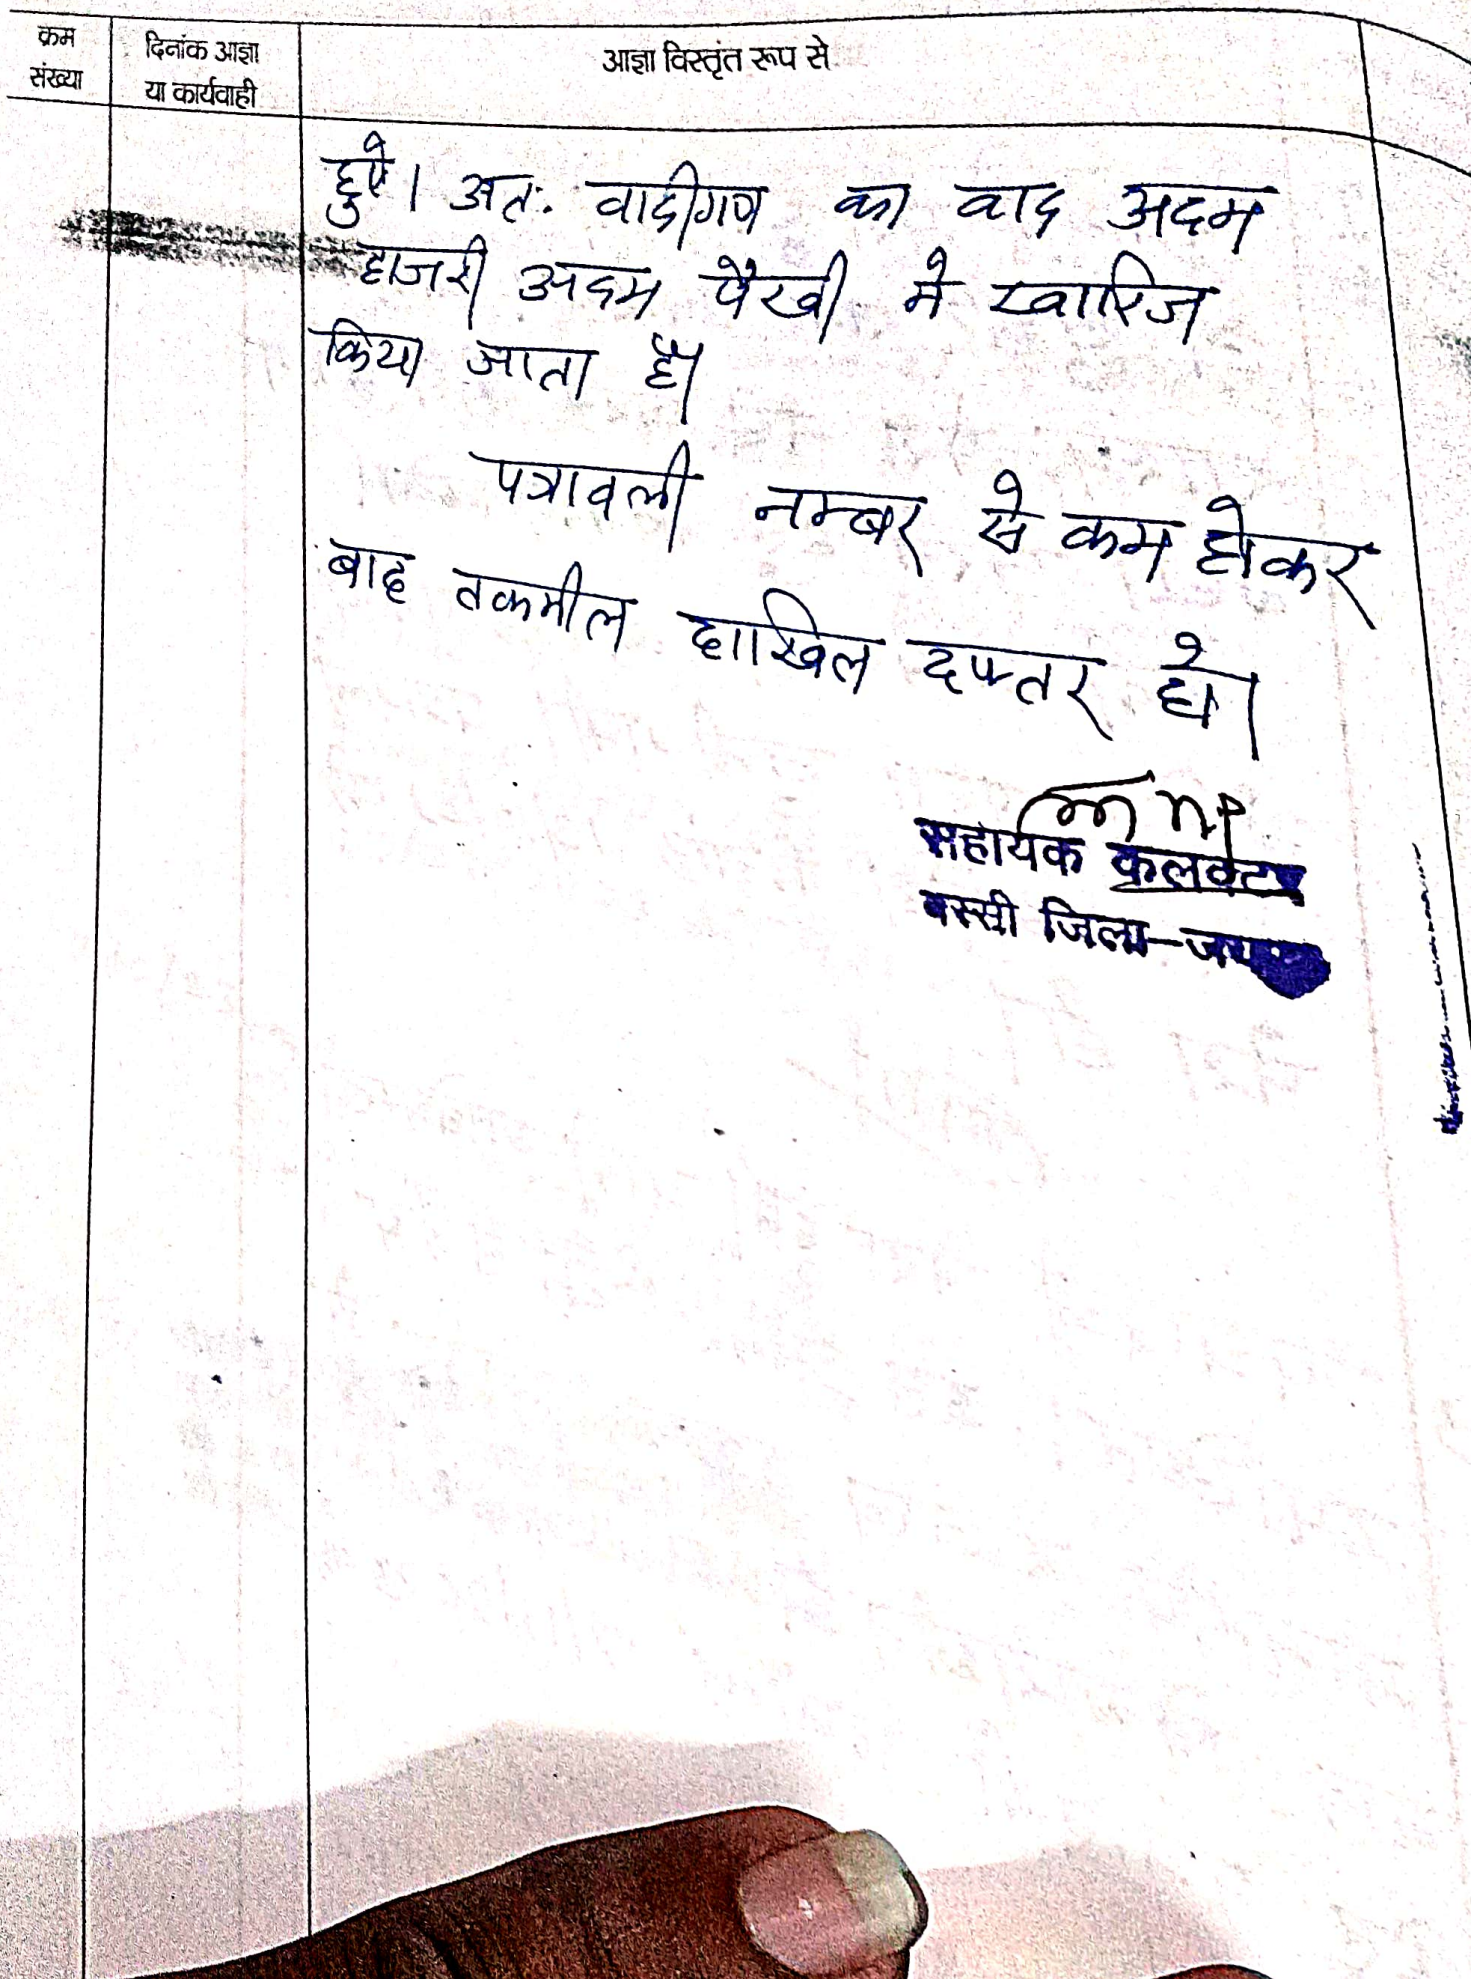 क्रम संख्या
दिनांक आज्ञा या कार्यवाही
आज्ञा विस्तृंत रूप से
हुऐ। अतः वादीगण का वाद अदम
हाजरी अदम पैरवी मे खारिज
किया जाता है।
पत्रावली नम्बर से कम होकर
बाद तकमील दाखिल दफ्तर हो।
सहायक कलक्टर
बस्सी जिला-